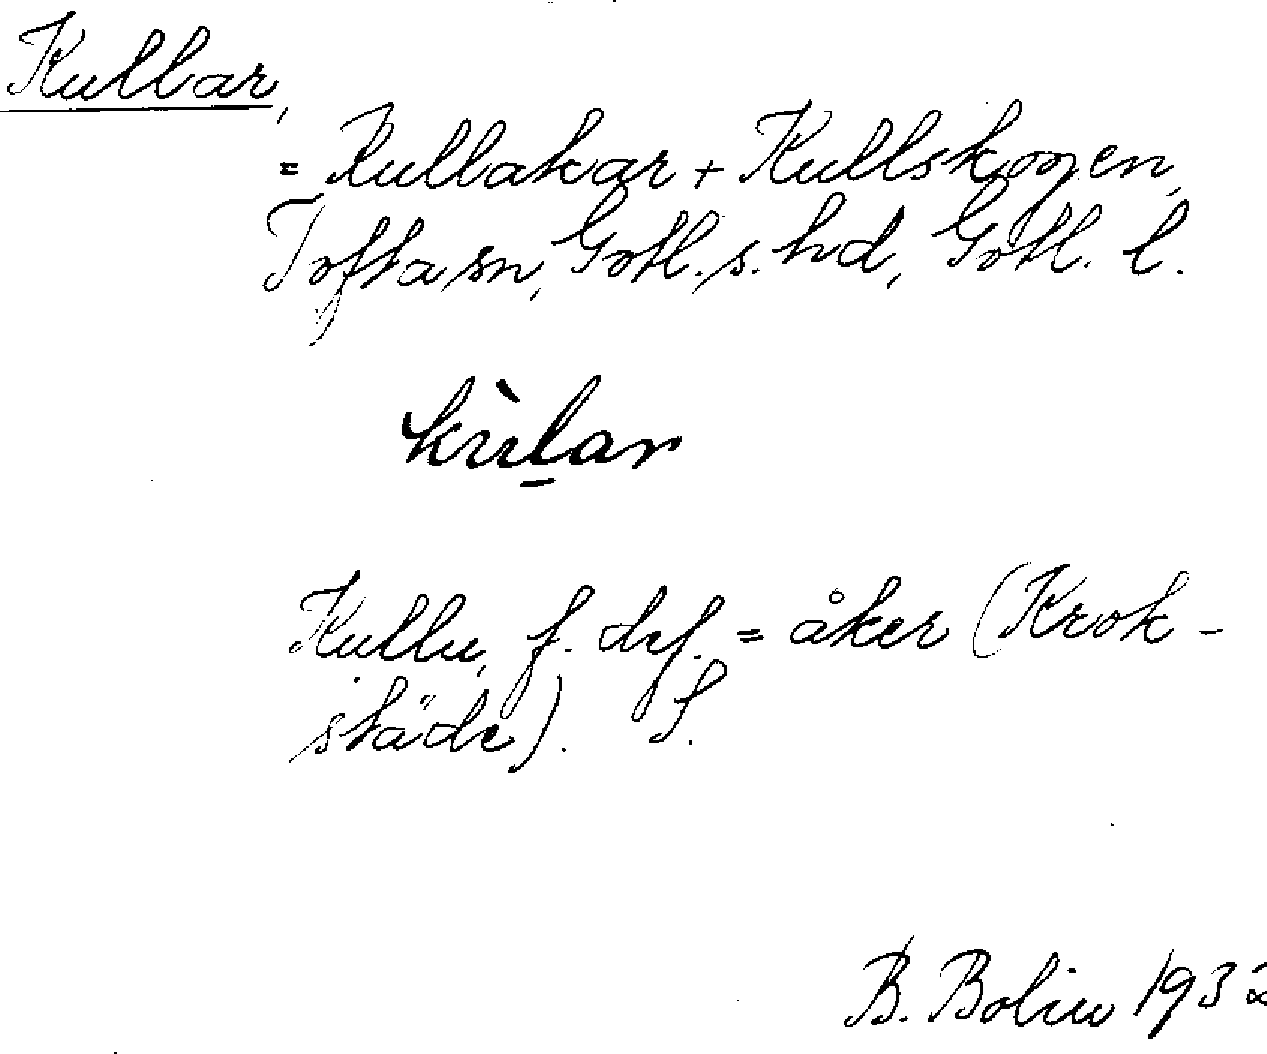 Kullar,
= Kullakar + Kullskogen,
Tofta sn, Gotl. s. hd, Gotl. l.
kùl̠ar
Kullu, f. def. = åker (Krok-
städe). f.
B. Bolin 1932